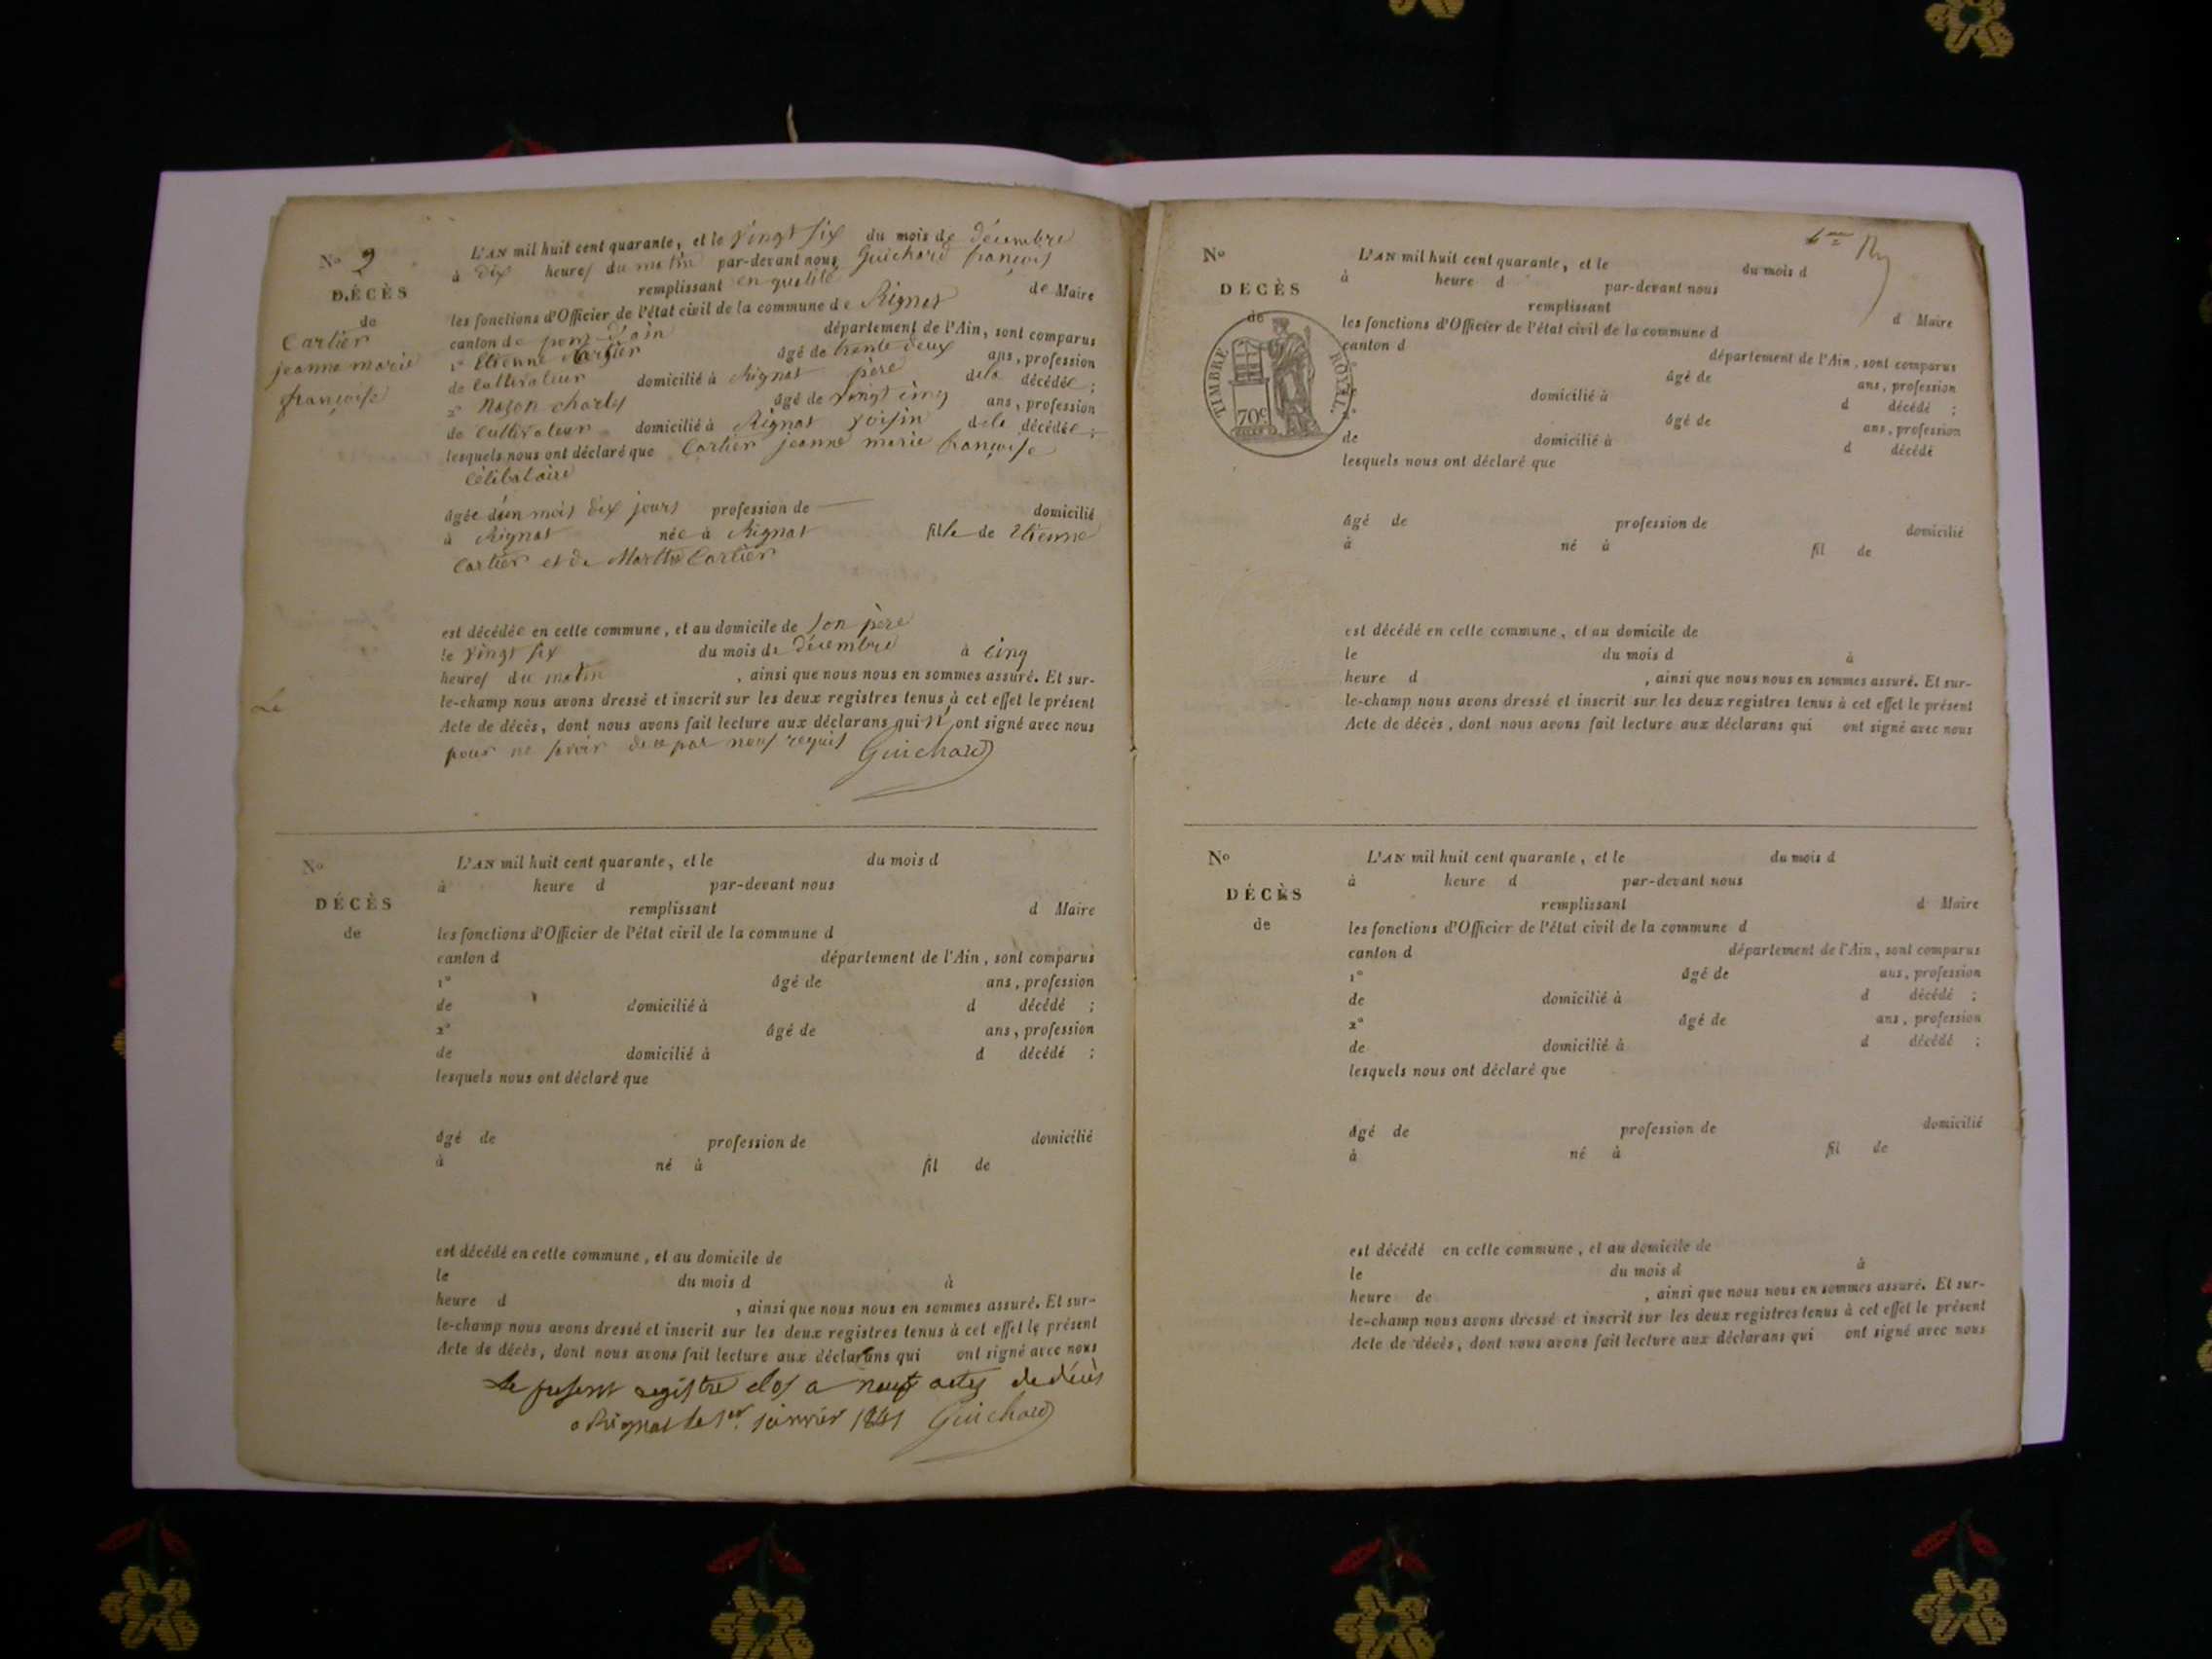 No 9
DÉCÈS
de
Cartier
jeanne marie
françoise
L'AN mil huit cent quarante, et le vingt six du mois de décembre
à dix heures du matin par-devant nous Guichard françois
remplissant en qualité de Maire
les fonctions d'Officier de l'état civil de la commune de Rignat
canton de pont d'ain département de l'Ain, sont comparus
1° Etienne Cartier âgé de trente deux ans, profession
de Cultivateur domicilié à Rignat père de la décédée ;
2° Nason charles âgé de vingt cinq ans, profession
de Cultivateur domicilié à Rignat voisin de la décédée ;
lesquels nous ont déclaré que Cartier jeanne marie françoise
Célibataire
âgée d'un mois dix jours profession de — domicilié
à Rignat née à Rignat fille de Etienne
Cartier et de Marthe Cartier
est décédée en cette commune, et au domicile de son père
le vingt six du mois de décembre à cinq
heures du matin , ainsi que nous nous en sommes assuré. Et sur-
le-champ nous avons dressé et inscrit sur les deux registres tenus à cet effet le présent
Acte de décès, dont nous avons fait lecture aux déclarans qui n' ont signé avec nous
pour ne savoir de ce par nous requis Guichard
No
DÉCÈS
de
L'AN mil huit cent quarante, et le du mois d
à heure d par-devant nous
remplissant d Maire
les fonctions d'Officier de l'état civil de la commune d
canton d département de l'Ain, sont comparus
1° âgé de ans, profession
de domicilié à d décédé ;
2° âgé de ans, profession
de domicilié à d décédé ;
lesquels nous ont déclaré que
âgé de profession de domicilié
à né à fil de
est décédé en cette commune, et au domicile de
le du mois d à
heure d , ainsi que nous nous en sommes assuré. Et sur-
le-champ nous avons dressé et inscrit sur les deux registres tenus à cet effet le présent
Acte de décès, dont nous avons fait lecture aux déclarans qui ont signé avec nous
Le present registre clos a neuf actes de décès
a Rignat le 1er janvier 1841 Guichard
No
DECÈS
de
TIMBRE ROYAL.
70c
L'AN mil huit cent quarante, et le du mois d
à heure d par-devant nous
remplissant d Maire
les fonctions d'Officier de l'état civil de la commune d
canton d département de l'Ain, sont comparus
âgé de ans, profession
domicilié à d décédé ;
âgé de ans, profession
de domicilié à d décédé
lesquels nous ont déclaré que
âgé de profession de domicilié
à né à fil de
est décédé en cette commune, et au domicile de
le du mois d à
heure d , ainsi que nous nous en sommes assuré. Et sur-
le-champ nous avons dressé et inscrit sur les deux registres tenus à cet effet le présent
Acte de décès, dont nous avons fait lecture aux déclarans qui ont signé avec nous
No
DÉCÈS
de
L'AN mil huit cent quarante, et le du mois d
à heure d par-devant nous
remplissant d Maire
les fonctions d'Officier de l'état civil de la commune d
canton d département de l'Ain, sont comparus
1° âgé de ans, profession
de domicilié à d décédé ;
2° âgé de ans, profession
de domicilié à d décédé ;
lesquels nous ont déclaré que
âgé de profession de domicilié
à né à fil de
est décédé en cette commune, et au domicile de
le du mois d à
heure de , ainsi que nous nous en sommes assuré. Et sur-
le-champ nous avons dressé et inscrit sur les deux registres tenus à cet effet le présent
Acte de décès, dont nous avons fait lecture aux déclarans qui ont signé avec nous